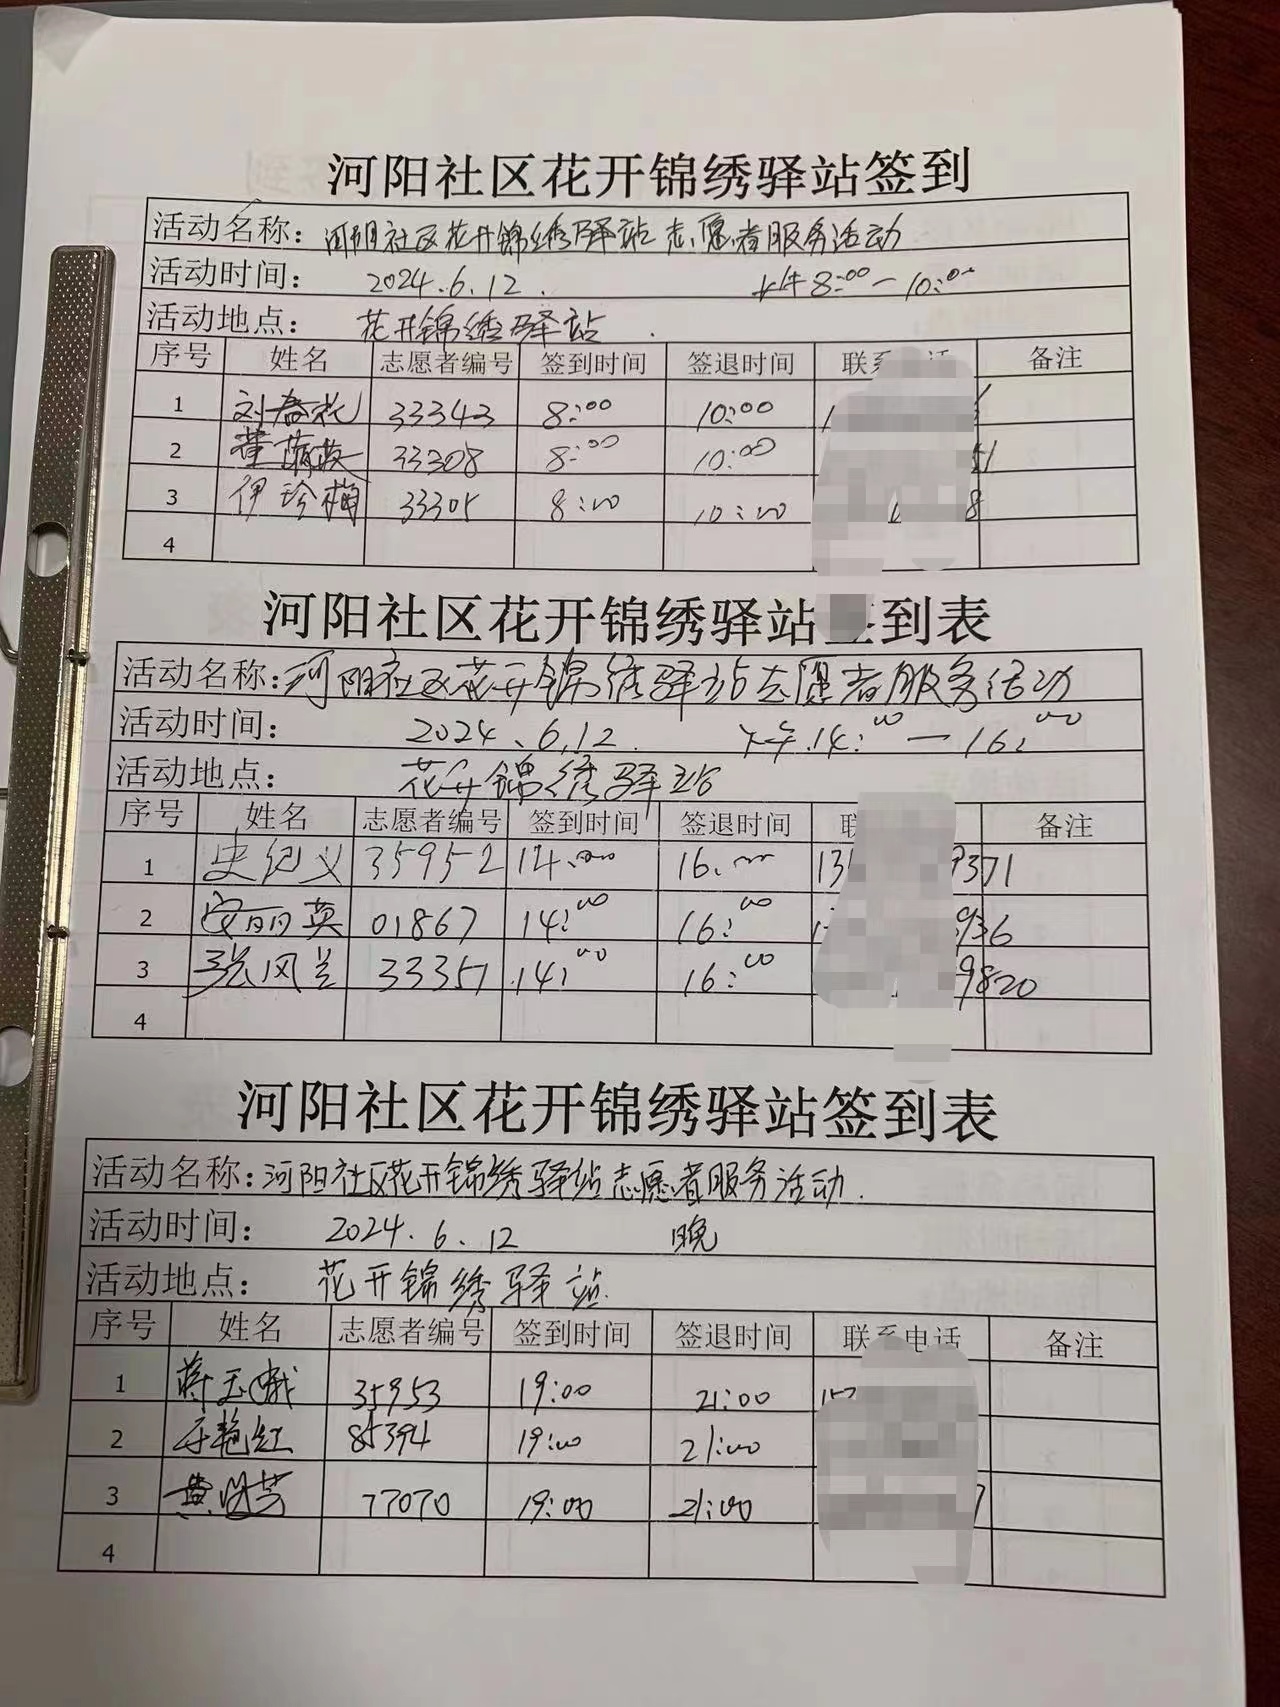 河阳社区花开锦绣驿站签到
活动名称：河阳社区花开锦绣驿站志愿者服务活动
活动时间： 2024.6.12. 上午8:00-10:00
活动地点： 花开锦绣驿站.
序号 姓名 志愿者编号 签到时间 签退时间 联系 备注
1 刘春花 33343 8:00 10:00 1
2 董蒲英 33308 8:00 10:00 51
3 伊珍梅 33305 8:00 10:00 8
4
河阳社区花开锦绣驿站签到表
活动名称：河阳社区花开锦绣驿站志愿者服务活动
活动时间： 2024.6.12. 下午.14:00-16:00
活动地点： 花开锦绣驿站
序号 姓名 志愿者编号 签到时间 签退时间 联 备注
1 史纪义 35952 14:00 16:00 13 9371
2 安丽英 01867 14:00 16:00 1 936
3 张风兰 33351 14:00 16:00 9820
4
河阳社区花开锦绣驿站签到表
活动名称：河阳社区花开锦绣驿站志愿者服务活动.
活动时间： 2024.6.12 晚
活动地点： 花开锦绣驿站.
序号 姓名 志愿者编号 签到时间 签退时间 联系电话 备注
1 蒋玉娥 35953 19:00 21:00 15
2 艳红 85394 19:00 21:00
3 黄 芳 77070 19:00 21:00 7
4